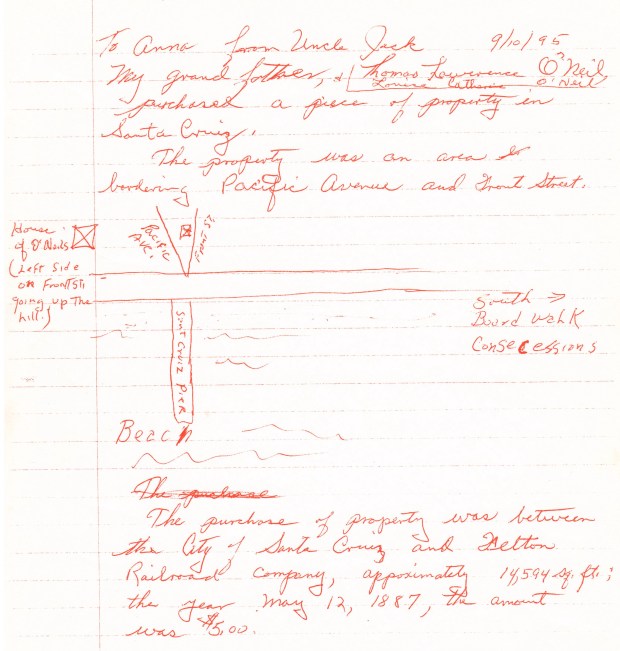 To Anna from Uncle Jack 9/10/95
My grand father, & Thomas Lawerence O'Neil
Louisa Catherine O'Neil
purchased a piece of property in
Santa Cruiz.
The property was an area
bordering Pacific Avenue and Front Street.
House
of O'Neils
(Left Side
on Front St.
going up the
hill)
Pacific
Ave.
Front St.
Sant Cruiz Pier
South →
Board Walk
Consecessions
Beach
The purchase
The purchase of property was between
the City of Santa Cruiz and Felton
Railroad company, appoximately 14,594 sq. ft.;
the year May 12, 1887, the amount
was $5.00.